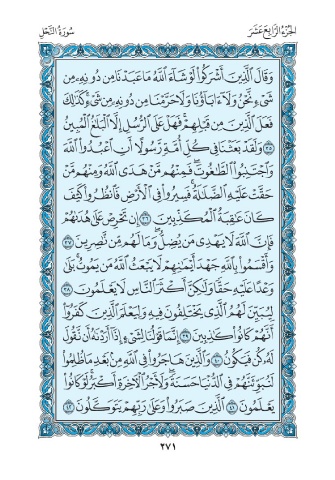 الجزء الرابع عشر
سورة النحل
وَقَالَ ٱلَّذِينَ أَشْرَكُوا۟ لَوْ شَآءَ ٱللَّهُ مَا عَبَدْنَا مِن دُونِهِۦ مِن
شَىْءٍ نَّحْنُ وَلَآ ءَابَآؤُنَا وَلَا حَرَّمْنَا مِن دُونِهِۦ مِن شَىْءٍ كَذَٰلِكَ
فَعَلَ ٱلَّذِينَ مِن قَبْلِهِمْ فَهَلْ عَلَى ٱلرُّسُلِ إِلَّا ٱلْبَلَٰغُ ٱلْمُبِينُ
٣٥ وَلَقَدْ بَعَثْنَا فِى كُلِّ أُمَّةٍ رَّسُولًا أَنِ ٱعْبُدُوا۟ ٱللَّهَ
وَٱجْتَنِبُوا۟ ٱلطَّٰغُوتَ فَمِنْهُم مَّنْ هَدَى ٱللَّهُ وَمِنْهُم مَّنْ
حَقَّتْ عَلَيْهِ ٱلضَّلَٰلَةُ فَسِيرُوا۟ فِى ٱلْأَرْضِ فَٱنظُرُوا۟ كَيْفَ
كَانَ عَٰقِبَةُ ٱلْمُكَذِّبِينَ ٣٦ إِن تَحْرِصْ عَلَىٰ هُدَىٰهُمْ
فَإِنَّ ٱللَّهَ لَا يَهْدِى مَن يُضِلُّ وَمَا لَهُم مِّن نَّٰصِرِينَ ٣٧
وَأَقْسَمُوا۟ بِٱللَّهِ جَهْدَ أَيْمَٰنِهِمْ لَا يَبْعَثُ ٱللَّهُ مَن يَمُوتُ بَلَىٰ
وَعْدًا عَلَيْهِ حَقًّا وَلَٰكِنَّ أَكْثَرَ ٱلنَّاسِ لَا يَعْلَمُونَ ٣٨
لِيُبَيِّنَ لَهُمُ ٱلَّذِى يَخْتَلِفُونَ فِيهِ وَلِيَعْلَمَ ٱلَّذِينَ كَفَرُوٓا۟
أَنَّهُمْ كَانُوا۟ كَٰذِبِينَ ٣٩ إِنَّمَا قَوْلُنَا لِشَىْءٍ إِذَآ أَرَدْنَٰهُ أَن نَّقُولَ
لَهُۥ كُن فَيَكُونُ ٤٠ وَٱلَّذِينَ هَاجَرُوا۟ فِى ٱللَّهِ مِنۢ بَعْدِ مَا ظُلِمُوا۟
لَنُبَوِّئَنَّهُمْ فِى ٱلدُّنْيَا حَسَنَةً وَلَأَجْرُ ٱلْءَاخِرَةِ أَكْبَرُ لَوْ كَانُوا۟
يَعْلَمُونَ ٤١ ٱلَّذِينَ صَبَرُوا۟ وَعَلَىٰ رَبِّهِمْ يَتَوَكَّلُونَ ٤٢
٢٧١